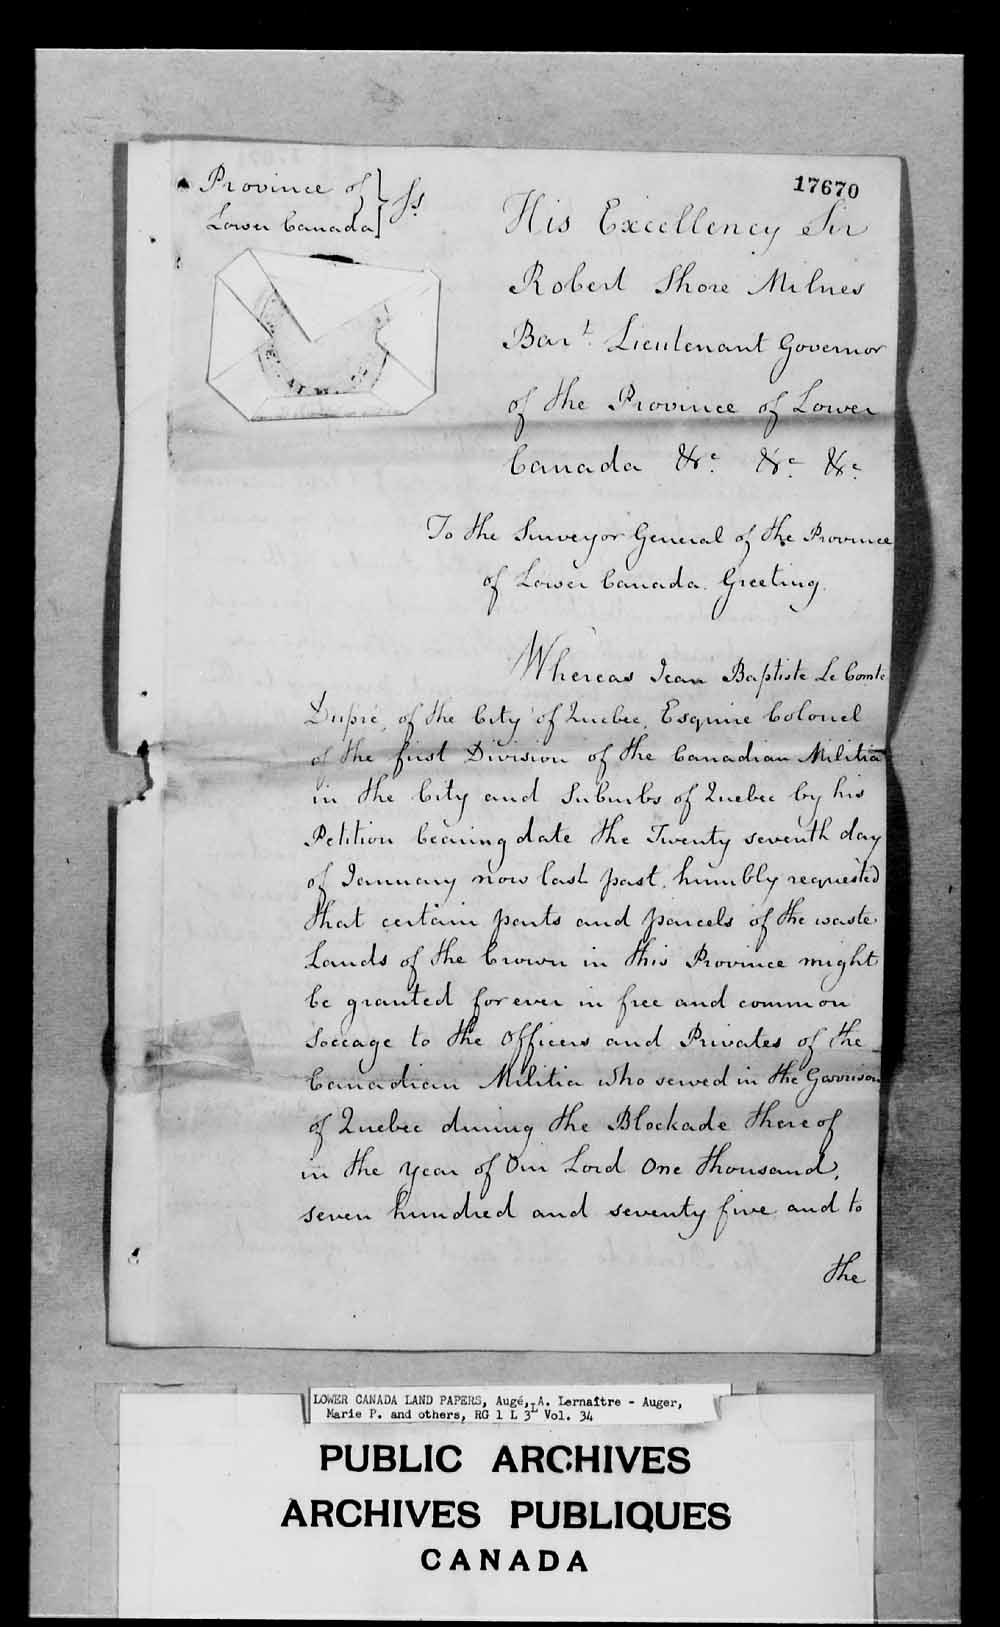 17670
Province of } Ss.
Lower Canada
His Excellency Sir
Robert Shore Milnes
Bart. Lieutenant Governor
of the Province of Lower
Canada &c. &c. &c.
To the Surveyor General of the Province
of Lower Canada. Greeting.
Whereas Jean Baptiste Le Comte
Dupré, of the City of Quebec, Esquire Colonel
of the first Division of the Canadian Militia
in the City and Suburbs of Quebec by his
Petition bearing date the Twenty seventh day
of January now last past, humbly requested
that certain parts and parcels of the waste
Lands of the Crown in this Province might
be granted for ever in free and common
Soccage to the Officers and Privates of the
Canadian Militia who served in the Garrison
of Quebec during the Blockade thereof
in the year of Our Lord One thousand,
seven hundred and seventy five and to
the
LOWER CANADA LAND PAPERS, Augé, A. Lernaître - Auger,
Marie P. and others, RG 1 L 3L Vol. 34
PUBLIC ARCHIVES
ARCHIVES PUBLIQUES
CANADA